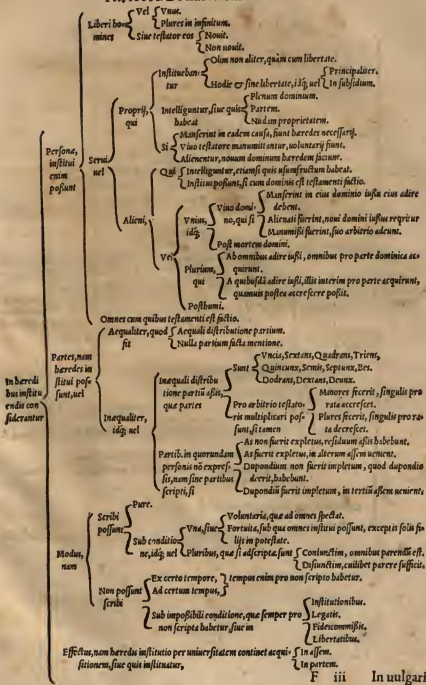 Liberi ho-
mines
Vel
Vnus.
Plures in infinitum.
Siue testator eos
Nouit.
Non nouit.
Personæ,
institui
enim
possunt
Serui
uel
Proprij,
qui
Institueban-
tur
Olim non aliter, quàm cum libertate.
Hodie & sine libertate, idq; uel
Principaliter.
In subsidium.
Intelliguntur, siue quis
habeat
Plenum dominium.
Partem.
Nudam proprietatem.
Si
Manserint in eadem causa, fiunt hæredes necessarij.
Viuo testatore manumittantur, uoluntarij fiunt.
Alienentur, nouum dominum hæredem faciunt.
Alieni,
Qui
Intelliguntur, etiamsi quis usumfructum habeat.
Institui possunt, si cum dominis est testamenti factio.
Vel
Vnius,
idq;
Viuo domi-
no, qui si
Manserint in eius dominio iussu eius adire
debent.
Alienati fuerint, noui domini iussus reqritur
Manumissi fuerint, suo arbitrio adeunt.
Post mortem domini.
Plurium,
qui
Ab omnibus adire iussi, omnibus pro parte dominica ac-
quirunt.
A quibusdã adire iussi, illis interim pro parte acquirunt,
quamuis postea accrescere possit.
Postbumi.
Omnes cum quibus testamenti est factio.
In hæredi
bus institu
endis con
siderantur
Partes, nam
hæredes in
stitui pos-
sunt, uel
Aequaliter, quod
fit
Aequali distributione partium.
Nulla partium facta mentione.
Inæqualiter,
idq; uel
Inæquali distribu
tione partiũ assis,
quæ partes
Sunt
Vncia, Sextans, Quadrans, Triens,
Quincunx, Semis, Septunx, Bes.
Dodrans, Dextans, Deunx.
Pro arbitrio testato-
ris multiplicari pos-
sunt, si tamen
Minores fecerit, singulis pro
rata accrescet.
Plures fecerit, singulis pro ra-
ta decrescet.
Partib. in quorundam
personis nõ expres-
sis, nam sine partibus
scripti, si
As non fuerit expletus, residuum assis habebunt.
As fuerit expletus, in alterum assem uenient.
Dupondium non fuerit impletum, quod dupondio
deerit, habebunt.
Dupondiũ fuerit impletum, in tertiũ assem uenient.
Modus,
nam
Scribi
possunt
Pure.
Sub conditio
ne, idq; uel
Vna, siue
Voluntaria, quæ ad omnes spectat.
Fortuita, sub qua omnes institui possunt, exceptis solis fi-
lijs in potestate.
Pluribus, quæ si adscriptæ sunt
Coniunctim, omnibus parendũ est.
Disiunctim, cuilibet parere sufficit.
Non possunt
scribi
Ex certo tempore,
Ad certum tempus,
tempus enim pro non scripto habetur.
Sub impossibili conditione, quæ semper pro
non scripta habetur, siue in
Institutionibus.
Legatis.
Fideicommissis.
Libertatibus.
Effectus, nam hæredis institutio per uniuersitatem continet acqui-
sitionem, siue quis instituatur,
In assem.
In partem.
F iii
In uulgari